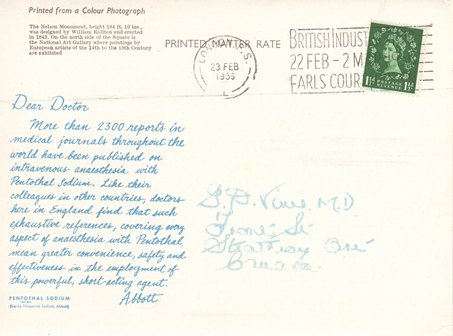 Printed from a Colour Photograph
The Nelson Monument, height 184 ft. 10 ins.,
was designed by William Railton and erected
in 1843. On the north side of the Square is
the National Art Gallery where paintings by
European artists of the 14th to the 19th Century
are exhibited
PRINTED MATTER RATE
LONDON S.
23 FEB
1956
L
BRITISH INDUST
22 FEB - 2 M
EARLS COUR
1½D POSTAGE REVENUE 1½D
Dear Doctor
More than 2300 reports in
medical journals throughout the
world have been published on
intravenous anaesthesia with
Pentothal Sodium. Like their
colleagues in other countries, doctors
here in England find that such
exhaustive references, covering every
aspect of anaesthesia with Pentothal
mean greater convenience, safety and
effectiveness in the employment of
this powerful, short-acting agent.
Abbott
PENTOTHAL SODIUM
(Sterile Thiopental Sodium, Abbott)
M.D.
St
Ont
Canada